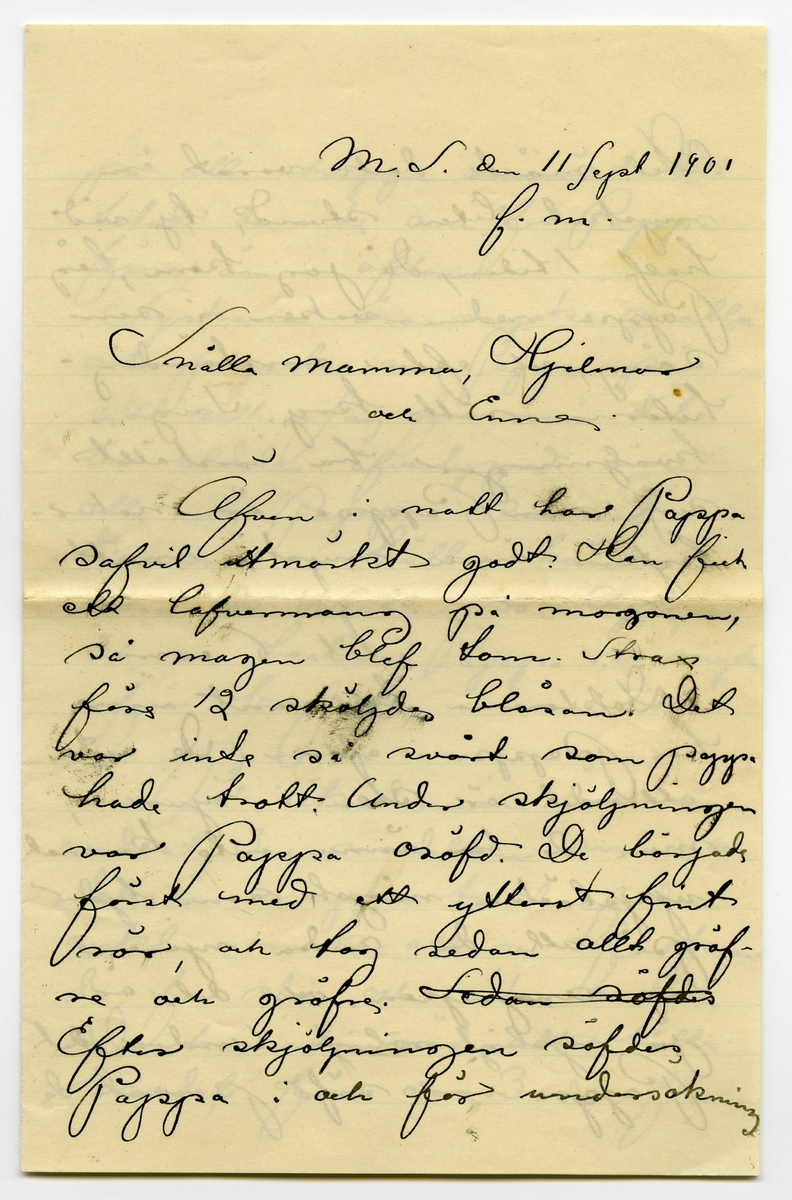 M. S. den 11 Sept 1901
f. m.
Snälla mamma, Hjalmar
och Enne,
Äfven i natt har Pappa
safvit utmärkt godt. Han fick
ett lafvemang på morgonen,
så magen blef tom. Strax
före 12 sköljdes blåsan. Det
var inte så svårt som pappa
hade trott. Under skjöljningen
var Pappa osöfd. De började
först med ett ytterst fint
rör, och tog sedan allt gröf-
re och gröfre. Sedan söfdes
Efter skjöljningen söfdes
Pappa i och för undersökning